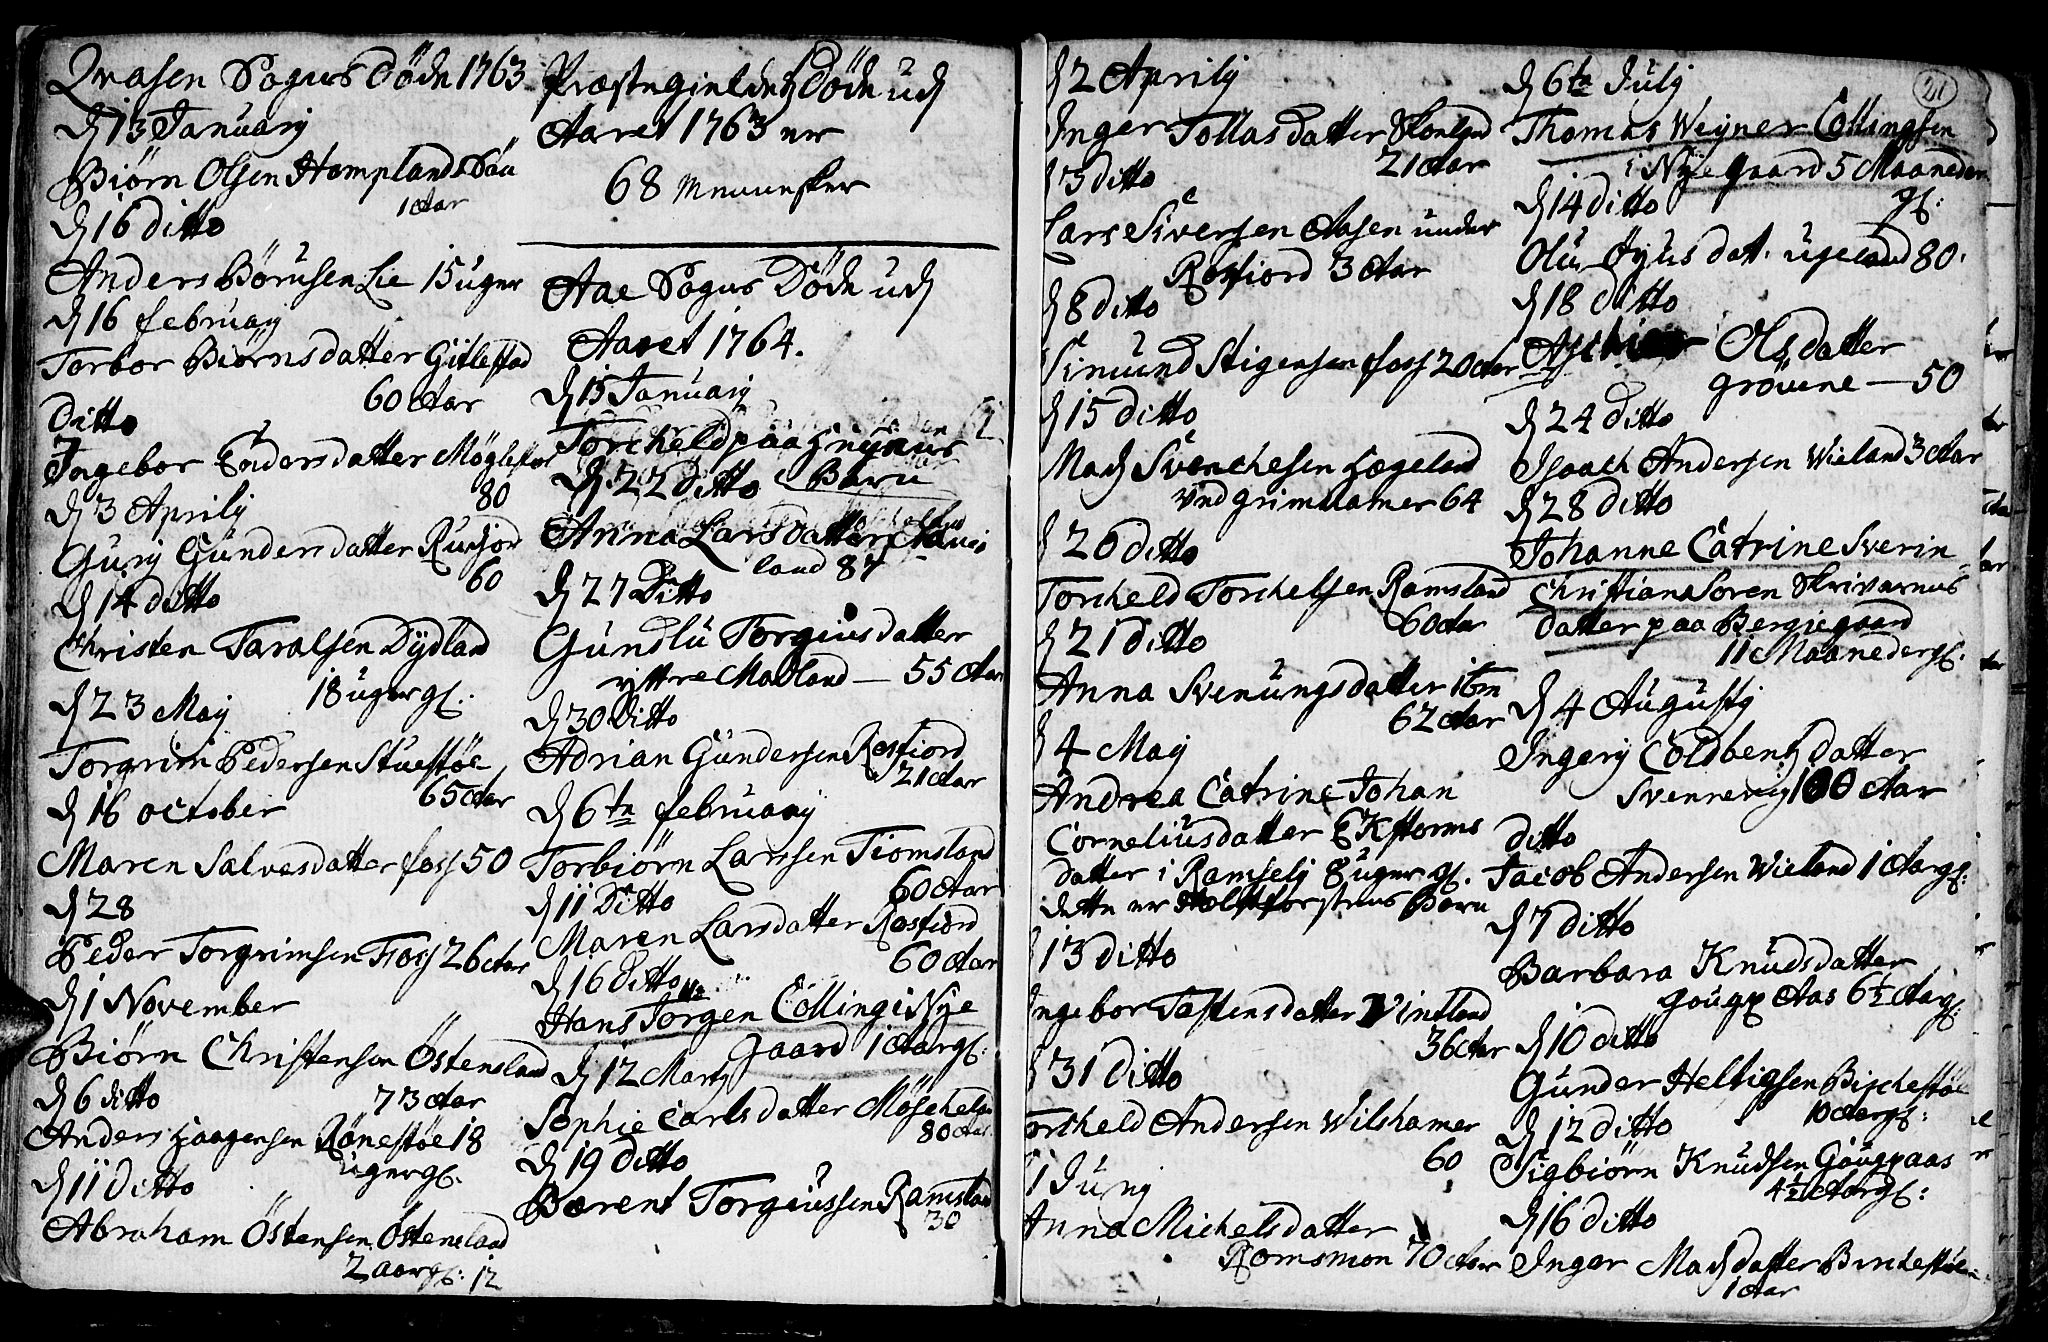 Qvasen Sogns Døde 1763
d 13 Januarij
Biørn Olsen Hamplands Søn
1 Aar
d 16 ditto
Anders Børnsen Lie 15 uger
d 16 februarij
Torbor Biørnsdatter Gitlestad
60 Aar
ditto
Ingebor Endersdatter Møglestøe
80
d 3 Aprilij
Gurij Gundersdatter
60
d 14 ditto
Christen Taralsen Dydland
18 uger gl:
d 23 Maij
Torgrim Pedersen Stuestøe
65 Aar
d 16 october
Maren Salvesdatter foss 50
d 28
Peder Torgrimsen Foss 26 Aar
d 1 November
Biørn Christensen Østensland
73 Aar
d 6 ditto
Anders Haagensen Rønestøe 18
uger gl.
d 11 Ditto
Abraham Østensen Østensland
2 aar gl: 12
Præstegieldetz Døde udj
Aaret 1763 er
68 Mennesker
Aae Sogns Døde udj
Aaret 1764.
d 15 Januarij
Torcheld paa
Barn
d 22 Ditto
Anna Larsdatter
land 87
d 27 Ditto
Gundlu Torgiusdatter
yttre Maaland — 55 Aar
d 30 Ditto
Adrian Gundersen Rosfiord
21 Aar
d 6te februarij
Torbiørn Larssen Tiomsland
60 Aar
d 11 Ditto
Maren Larsdatter Rosfiord
60 Aar
d 16 Ditto
Hans Jørgen Colling i Nye
gaard 1 Aar gl:
d 12 Martij
Sophie Carlsdatter
80 Aar
d 19 Ditto
Berent Torgiussen Ramsland
30
21
d 2 Aprilij
Inger Tollasdatter
21 Aar
d 3 ditto
Lars Siversen Aasen under
Rosfiord 3 Aar
d 8 ditto
Simund Stigensen foss 20 Aar
d 15 ditto
Mads Svenchesen Hægeland
ved grimmamer 64
d 26 ditto
Torcheld Torchelsen Ramsland
60 Aar
d 21 ditto
Anna Svenungsdatter
62 Aar
d 4 Maij
Andrea Catrine Johan
Corneliusdatter Ekstorms
datter i Ramslij 8 uger gl.
dette er Barn
d 13 ditto
Ingebor Tastensdatter Vintland
36 Aar
d 31 Ditto
Torcheld Andersen Wilshamer
60
d 1 Junij
Anna Michelsdatter
Romsmon 70 Aar
d 6te Julij
Thomas Weyner Collingsen
i Nye gaard 5 Maaneder
gl:
d 14 ditto
Olu datt. ugeland 80.
d 18 ditto
Olsdatter
grövene — 50
d 24 ditto
Isaach Andersen Wieland 3 Aar
d 28 ditto
Johanne Catrine Sverin
Christiana Soren Skrivernes
datter paa Bergiegaard
11 Maaneder gl:
d 4 Augustij
Ingerj Coldbentzdatter
Svennevig 100 Aar
ditto
Jacob Andersen Wieland 1 Aar gl:
d 7 ditto
Barbara Knudsdatter
Aas 6½ Aar gl:
d 10 ditto
Gunder Helligsen Birchestøe
10 Aar gl:
d 12 ditto
Sigbiørn Knudsen
4½ Aar gl:
d 16 ditto
Inger Madsdatter Birchestøe
1 Aar